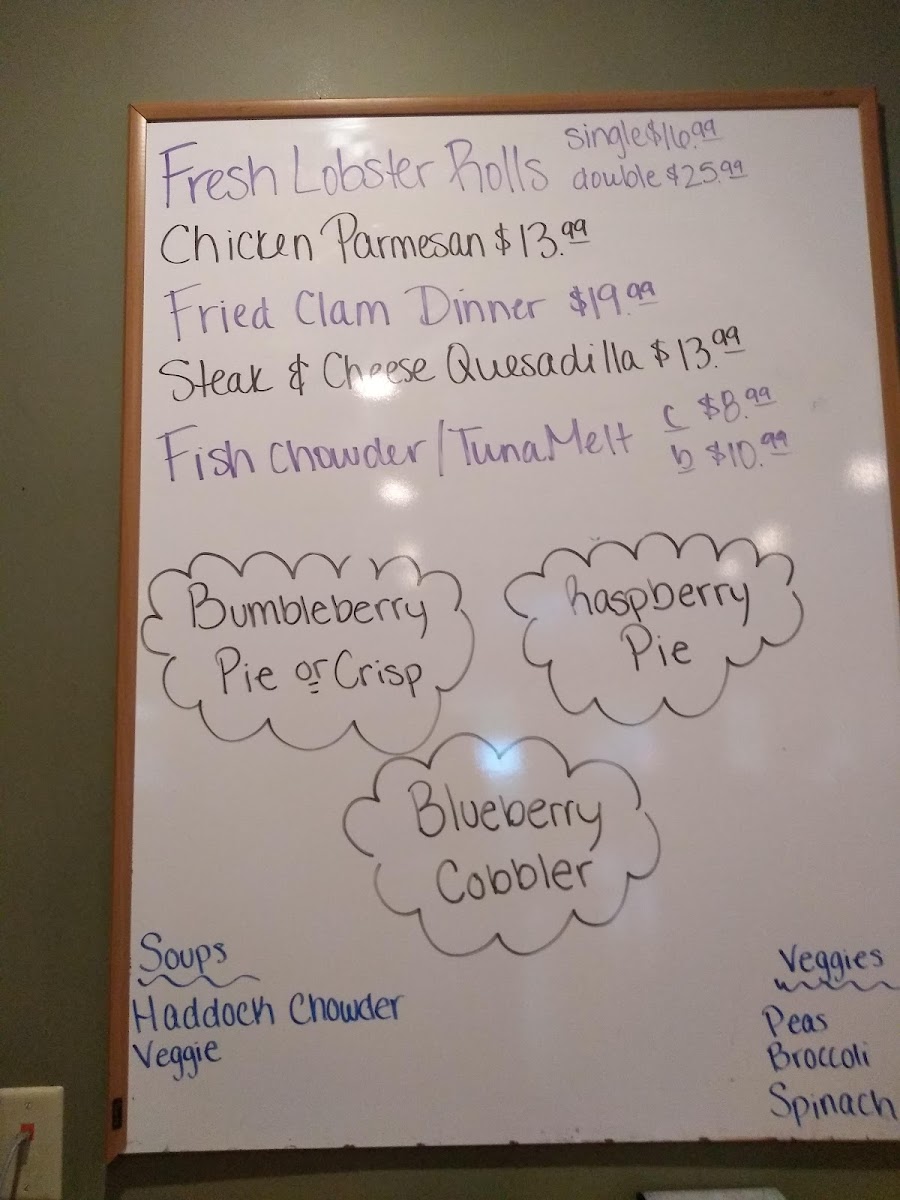 Fresh Lobster Rolls single $16.99
double $25.99
Chicken Parmesan $13.99
Fried Clam Dinner $19.99
Steak & Cheese Quesadilla $13.99
Fish Chowder/Tuna Melt c $8.99
b $10.99
Bumbleberry
Pie or Crisp
Raspberry
Pie
Blueberry
Cobbler
Soups
Haddock Chowder
Veggie
Veggies
Peas
Broccoli
Spinach